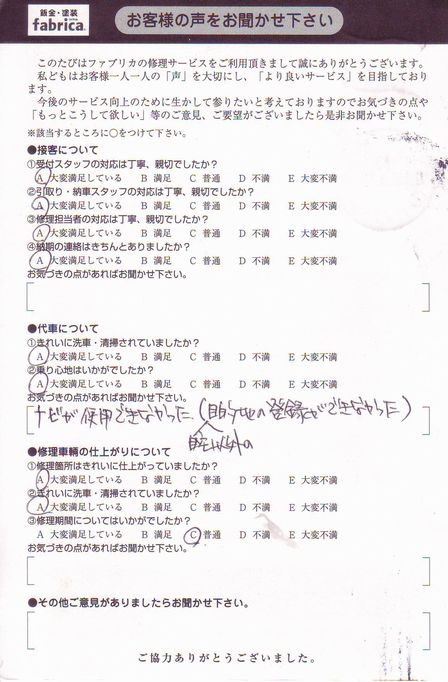 鈑金・塗装
fabrica.
お客様の声をお聞かせ下さい
このたびはファブリカの修理サービスをご利用頂きまして誠にありがとうございます。
私どもはお客様一人一人の「声」を大切にし、「より良いサービス」を目指しており
ます。
今後のサービス向上のために生かして参りたいと考えておりますのでお気づきの点や
「もっとこうして欲しい」等のご意見、ご要望がございましたら是非お聞かせ下さい。
※該当するところに○をつけて下さい。
●接客について
①受付スタッフの対応は丁寧、親切でしたか？
A 大変満足している B 満足 C 普通 D 不満 E 大変不満
②引取り・納車スタッフの対応は丁寧、親切でしたか？
A 大変満足している B 満足 C 普通 D 不満 E 大変不満
③修理担当者の対応は丁寧、親切でしたか？
A 大変満足している B 満足 C 普通 D 不満 E 大変不満
④納期の連絡はきちんとありましたか？
A 大変満足している B 満足 C 普通 D 不満 E 大変不満
お気づきの点があればお聞かせ下さい。
●代車について
①きれいに洗車・清掃されていましたか？
A 大変満足している B 満足 C 普通 D 不満 E 大変不満
②乗り心地はいかがでしたか？
A 大変満足している B 満足 C 普通 D 不満 E 大変不満
お気づきの点があればお聞かせ下さい。
ナビが使用できなかった (目的地の登録ができなかった)
自宅以外の
●修理車輌の仕上がりについて
①修理箇所はきれいに仕上がっていましたか？
A 大変満足している B 満足 C 普通 D 不満 E 大変不満
②きれいに洗車・清掃されていましたか？
A 大変満足している B 満足 C 普通 D 不満 E 大変不満
③修理期間についてはいかがでしたか？
A 大変満足している B 満足 C 普通 D 不満 E 大変不満
お気づきの点があればお聞かせ下さい。
●その他ご意見がありましたらお聞かせ下さい。
ご協力ありがとうございました。